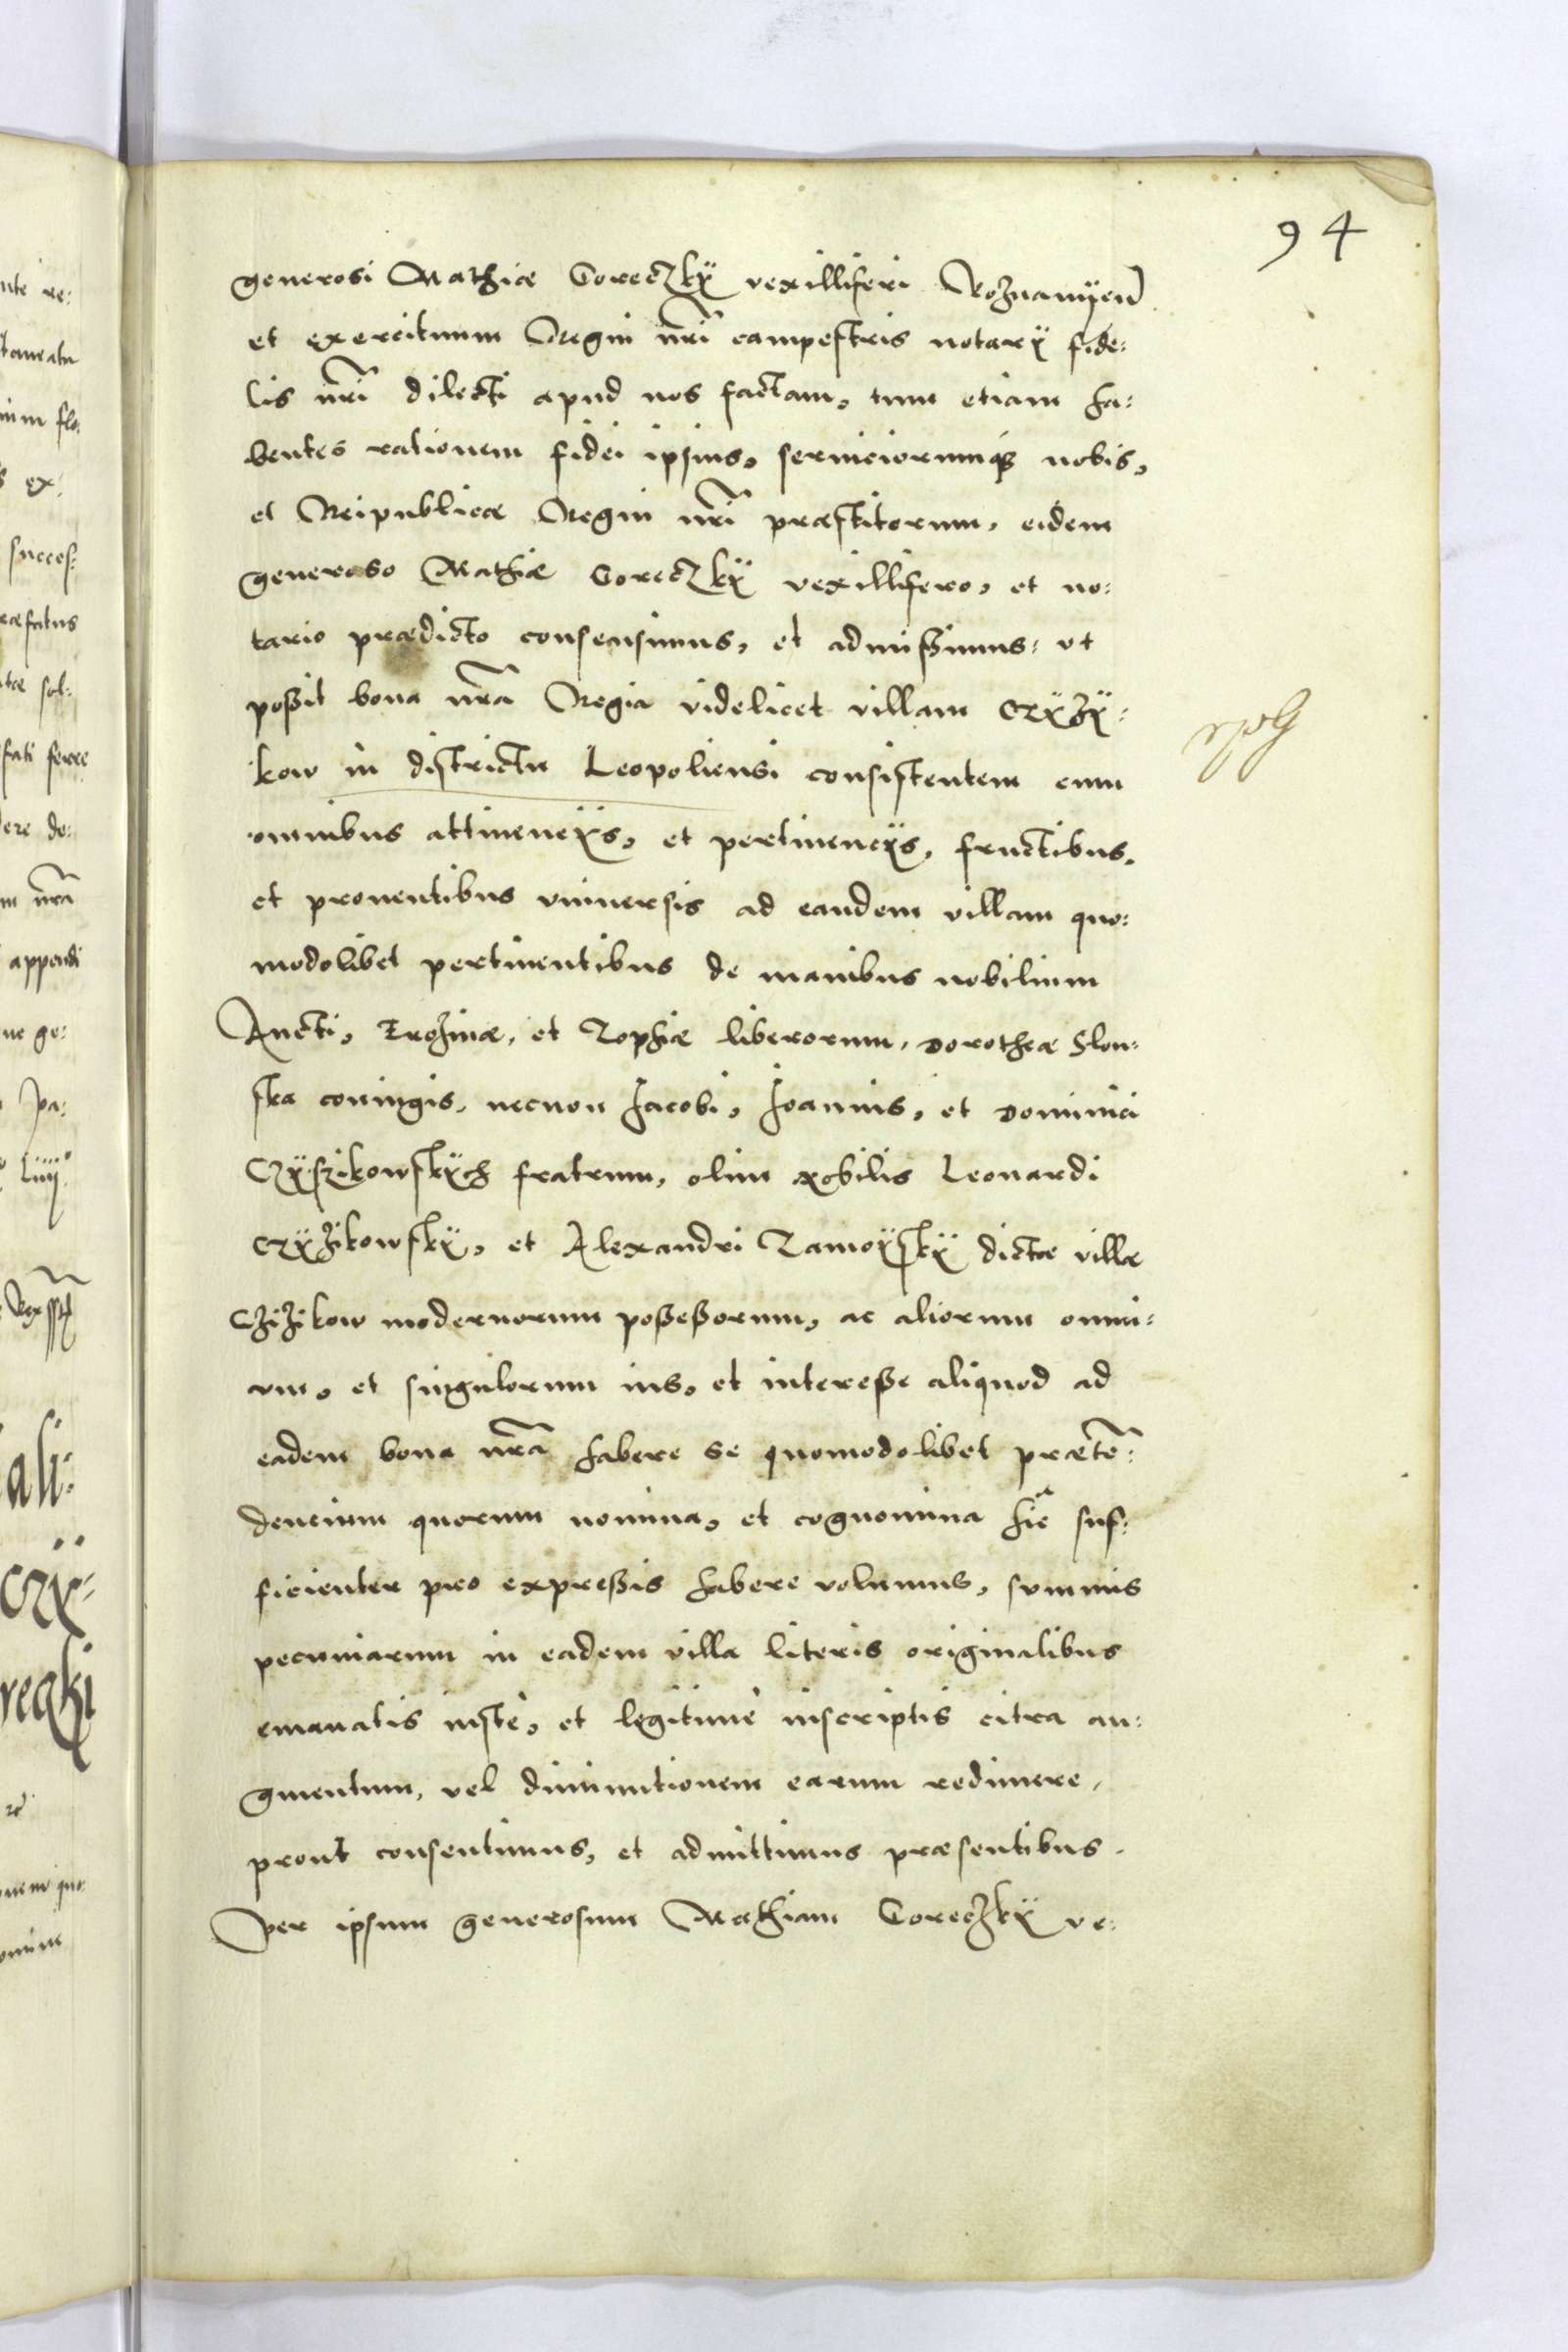 94
generosi Mathiæ Goreczkÿ vexilliferi Poznanÿen
et exercituum Regni nri campestris notarÿ fide:
lis nri dilecti apud nos factam, tum etiam ha:
bentes rationem fidei ipsius, seruiciorumq nobis,
et Reipublicæ Regni nri præstitorum, eidem
generoso Mathiæ Goreczkÿ vexillifero, et no:
tario prædicto consensimus, et admißimus: vt
poßit bona nra Regia videlicet villam Czÿzÿ:
kow in districtu Leopoliensi consistentem cum
omnibus attinencÿs, et pertinencÿs, fructibus,
et prouentibus vniuersis ad eandem villam quo:
modolibet pertinentibus de manibus nobilium
Aucti, et Zophiæ liberorum, Dorotheæ Slon:
ska coniugis, necnon Jacobi, Joannis, et Dominici
Czÿszikowskÿch fratrum, olim nobilis Leonardi
Czÿzikowskÿ, et Alexandri Zamoÿskÿ dictæ villæ
Czizikow modernorum poßeßorum, ac aliorum omni:
um, et singulorum ius, et intereße aliquod ad
eadem bona nra habere se quomodolibet prætē:
dencium quorum nomina, et cognomina hic suf:
ficienter pro expreßis habere volumus, summis
pecuniarum in eadem villa literis originalibus
emanatis iustè, et legitimè inscriptis citra au:
gmentum, vel diminutionem earum redimere,
prout consentimus, et admittimus præsentibus.
Per ipsum generosum Mathiam Goreczkÿ ve: